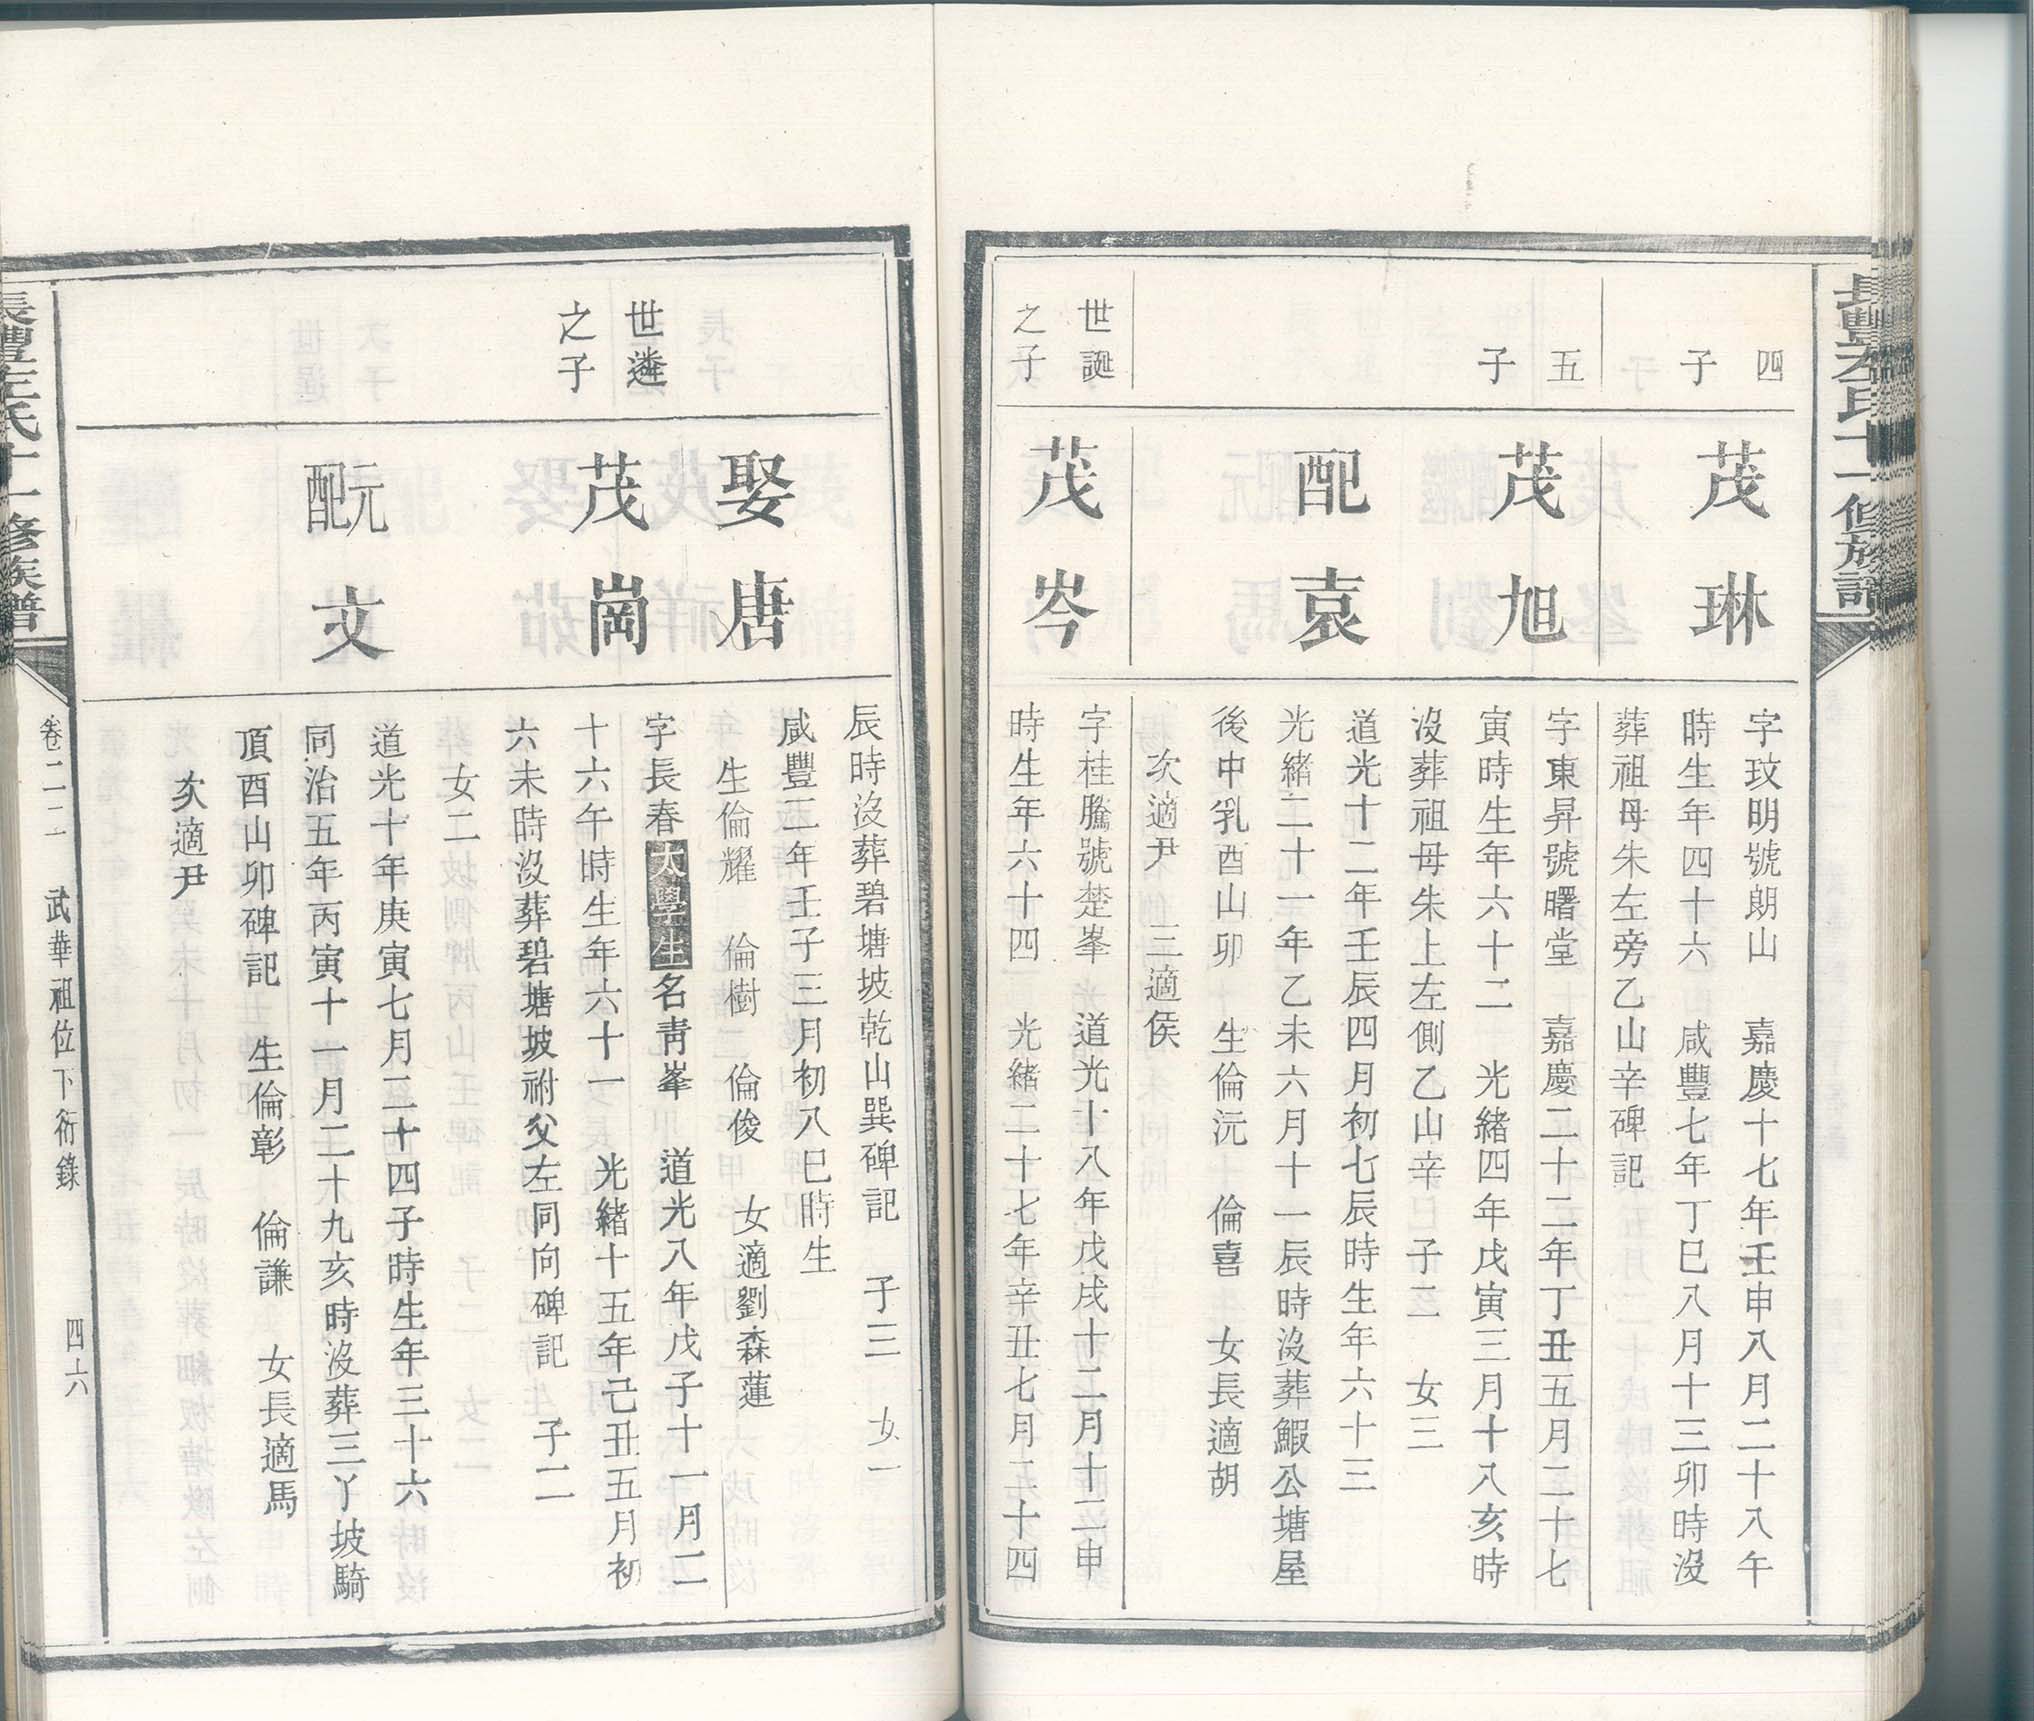 長豐左氏十一修族譜
四
子
茂琳
字玟明號朗山　嘉慶十七年壬申八月二十八午
時生年四十六　咸豐七年丁巳八月十三卯時沒
葬祖母朱左旁乙山辛碑記
五
子
茂旭
字東昇號曙堂　嘉慶二十二年丁丑五月二十七
寅時生年六十二　光緒四年戊寅三月十八亥時
沒葬祖母朱上左側乙山辛　子二　女三
配袁
道光十二年壬辰四月初七辰時生年六十三
光緒二十一年乙未六月十一辰時沒葬鰕公塘屋
後中乳酉山卯　生倫沅　倫喜　女長適胡
次適尹　三適侯
世誕
之子
茂岑
字桂騰號楚峯　道光十八年戊戌十二月十二申
時生年六十四　光緒二十七年辛丑七月二十四
辰時沒葬碧塘坡乾山巽碑記　子三　女一
娶唐
咸豐二年壬子三月初八巳時生
生倫耀　倫樹　倫俊　女適劉森蓮
世遴
之子
茂崗
字長春太學生名靑峯　道光八年戊子十一月二
十六午時生年六十一　光緒十五年己丑五月初
六未時沒葬碧塘坡祔父左同向碑記　子二
女二
元配文
道光十年庚寅七月二十四子時生年三十六
同治五年丙寅十一月二十九亥時沒葬三丫坡騎
頂酉山卯碑記　生倫彰　倫謙　女長適馬
次適尹
長豐左氏十一修族譜
卷二二　武華祖位下衍錄　四六